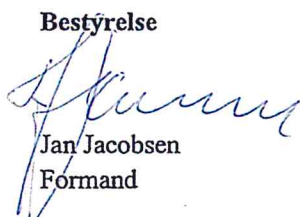 Bestyrelse
Jan Jacobsen
Formand